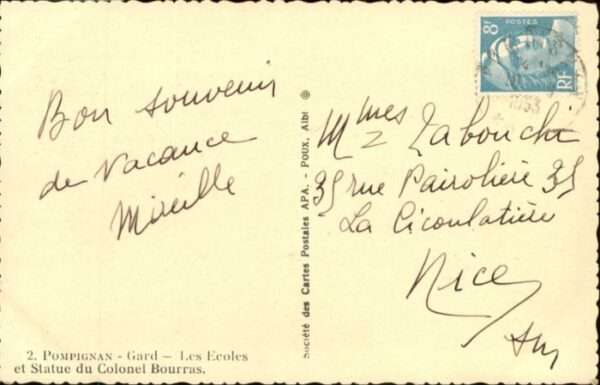 Bon souvenir
de Vacance
Mireille
2. POMPIGNAN - Gard - Les Ecoles
et Statue du Colonel Bourras.
Société des Cartes Postales APA. - POUX, Albi
8F POSTES
RF
1953
Mmes
35 rue Pairolière 35
La Cicoulatière
Nice